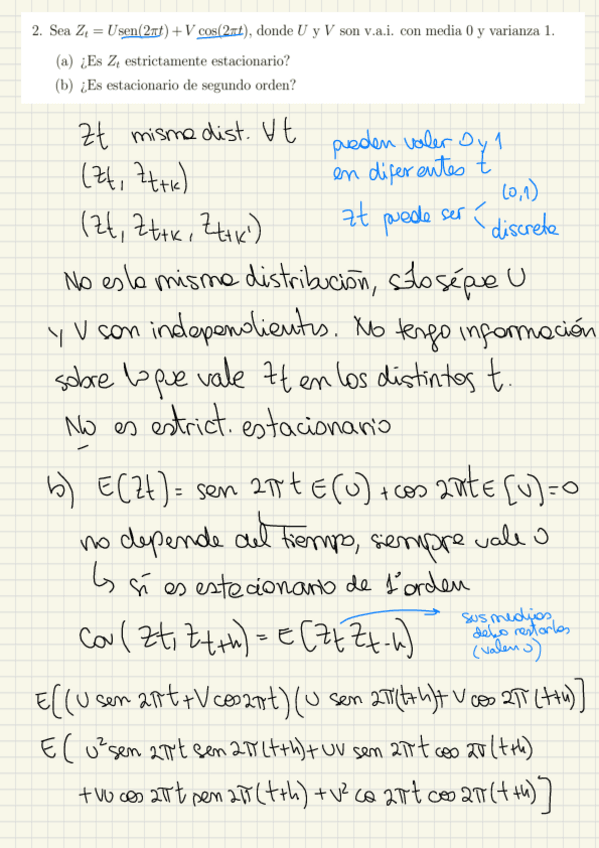 2. Sea Z_t = U sen(2πt) + V cos(2πt), donde U y V son v.a.i. con media 0 y varianza 1.
(a) ¿Es Z_t estrictamente estacionario?
(b) ¿Es estacionario de segundo orden?
Zt misma dist. ∀t
(Zt, Zt+k)
(Zt, Zt+k, Zt+k')
pueden valer 0 y 1
en diferentes t
Zt puede ser < (0,1)
discreta
No es la misma distribución, sólo sé que U
y V son independientes. No tengo información
sobre lo que vale Zt en los distintos t.
No es estrict. estacionario
b) E(Zt) = sen 2πt E(U) + cos 2πt E[V] = 0
no depende del tiempo, siempre vale 0
↳ sí es estacionario de 1º orden
Cov(Zt, Zt+h) = E[Zt Zt-h]
sus medias
debo restarlas
(valen 0)
E[(U sen 2πt + V cos 2πt)(U sen 2π(t+h) + V cos 2π(t+h)]
E( U² sen 2πt sen 2π(t+h) + UV sen 2πt cos 2π(t+h)
+ VU cos 2πt sen 2π(t+h) + V² cos 2πt cos 2π(t+h)]